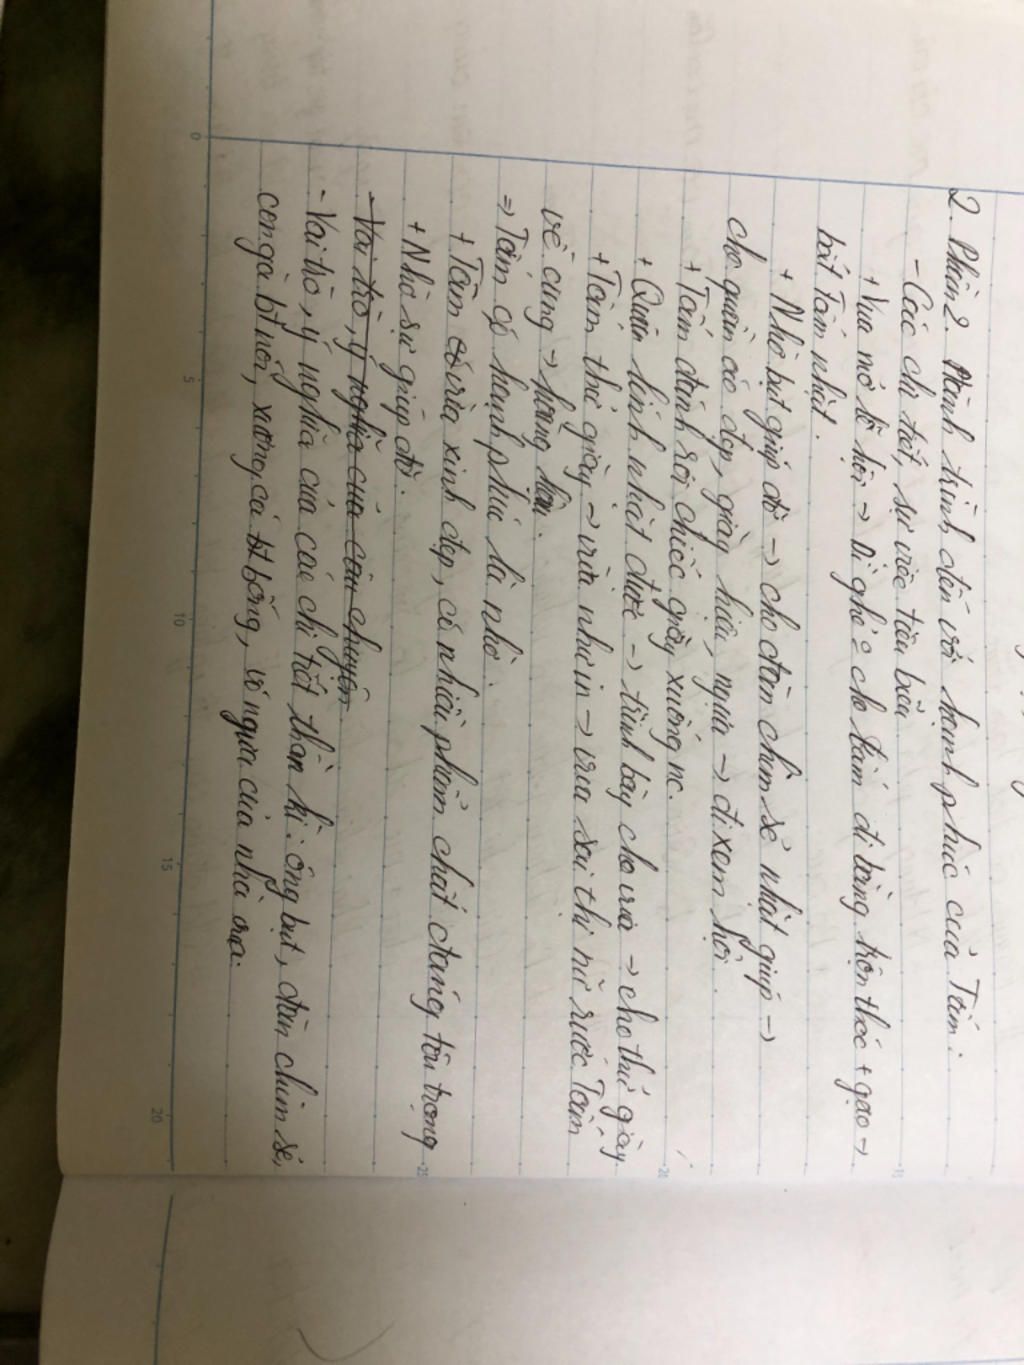 2. Phần 2. Hành trình đến với hạnh phúc của Tấm:
- Các chi tiết, sự việc tiêu biểu
+ Vua mở lễ hội → Dì ghẻ cho tấm đi bằng trộn thóc + gạo →
bắt Tấm nhặt.
+ Nhờ bụt giúp đỡ → cho đàn chim sẻ nhặt giúp →
cho quần áo đẹp, giày thêu, ngựa → đi xem hội.
+ Tấm đánh rơi chiếc giày xuống nc.
+ Quân lính nhặt được → trình bày cho vua → cho thử giày
+ Tấm thử giày → vừa như in → vua sai thị nữ rước Tấm
về cung → hoàng hậu.
⇒ Tấm có hạnh phúc là nhờ:
+ Tấm vừa xinh đẹp, có nhiều phẩm chất đáng tôn trọng
+ Nhờ sự giúp đỡ.
- Vai trò, ý nghĩa của câu chuyện
- Vai trò, ý nghĩa của các chi tiết thần kì: ông bụt, đàn chim sẻ,
con gà bt nói, xương cá bt bống, vó ngựa của nhà vua.